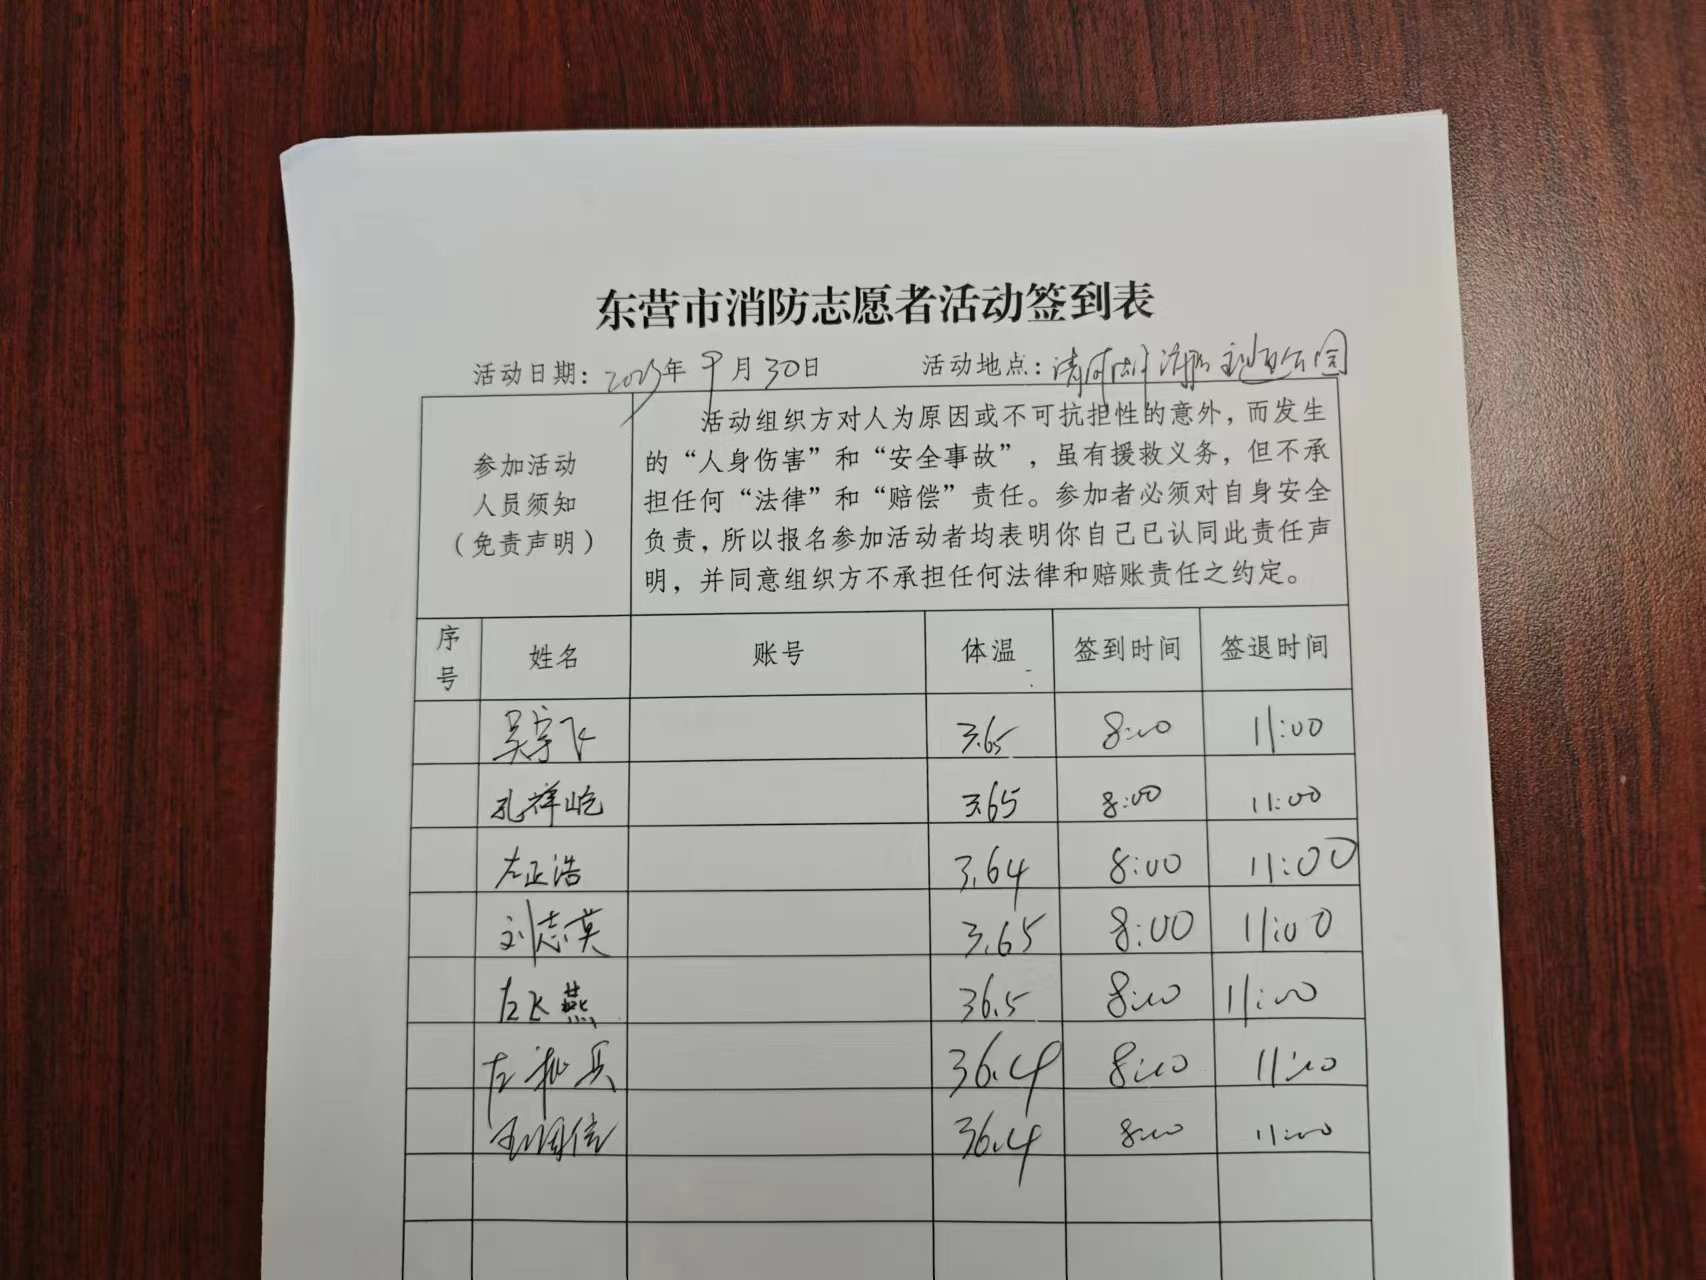 东营市消防志愿者活动签到表
活动日期：2023年9月30日 活动地点：消防主题公园
参加活动
人员须知
（免责声明）
活动组织方对人为原因或不可抗担性的意外，而发生
的“人身伤害”和“安全事故”，虽有援救义务，但不承
担任何“法律”和“赔偿”责任。参加者必须对自身安全
负责，所以报名参加活动者均表明你自己已认同此责任声
明，并同意组织方不承担任何法律和赔账责任之约定。
序号 姓名 账号 体温 签到时间 签退时间
吴宇飞 3.65 8:00 11:00
孔祥屹 3.65 8:00 11:00
左正浩 3.64 8:00 11:00
刘志英 3.65 8:00 11:00
左飞燕 36.5 8:00 11:00
左 兵 36.4 8:00 11:00
信 36.4 8:00 11:00